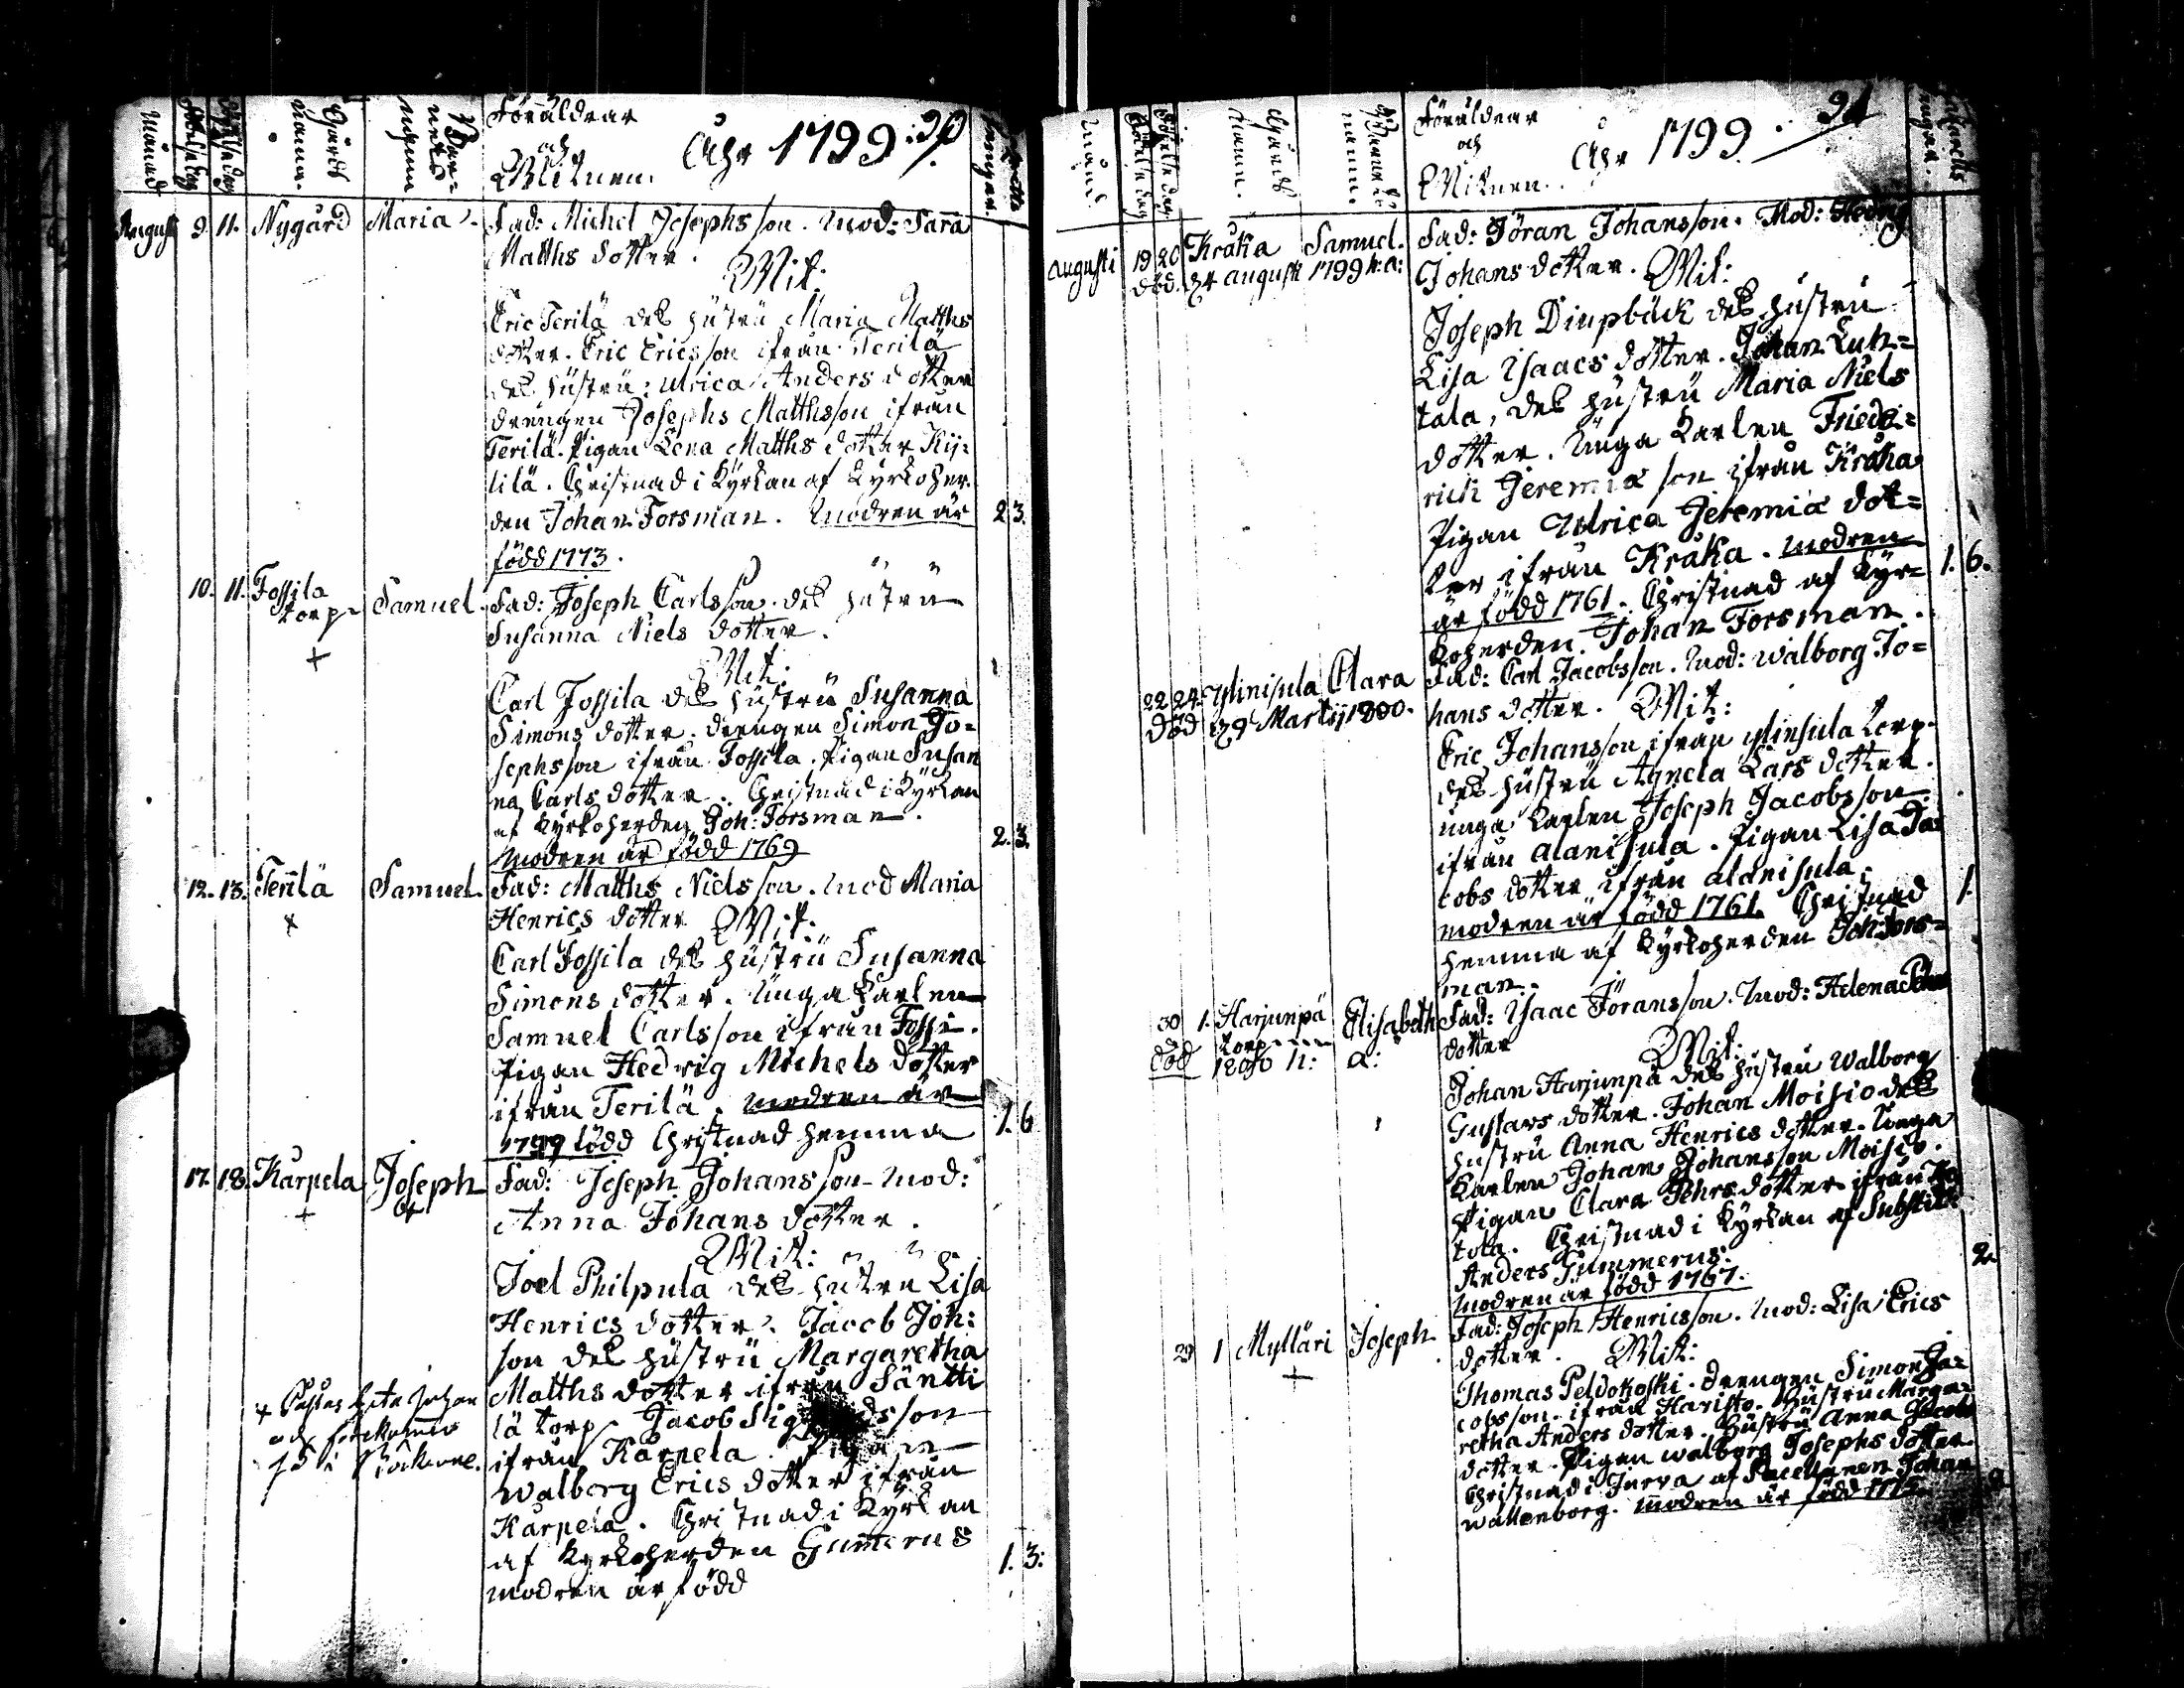 Månad
Födelse dag
Döpelse dag
Gårds namn.
Barnets namn
Föräldrar
och
Witnen.
Åhr 1799. 90
August 9 11. Nygård Maria. Fad: Michel Josephsson. Mod: Sara
Matths dotter.
Wit:
Eric Terilä des hustru Maria Matths
dotter. Eric Ericsson ifrån Terilä
des hustru: Ulrica Anders dotter
drengen Josephs Matthsson ifrån
Terilä. Pigan Lena Matths dotter Kij-
lilä. Christnad i Kyrkan af Kyrkoher-
den Johan Forsman. Modren är 2 3.
född 1773.
10. 11. Fossila Samuel. Fad: Joseph Carlsson. des hustru
torp
Susanna Niels dotter.
+
Wit:
Carl Fossila des hustru Susanna
Simons dotter. drengen Simon Jo=
sephsson ifrån Fossila. Pigan Susan
na Carls dotter. Christnad i Kyrkan
af Kyrkoherden Joh: Forsman. 2. 3.
Modren är född 1769
12. 13. Terilä Samuel. Fad: Matths Nielsson. Mod Maria
+ Henrics dotter Wit:
Carl Fossila des hustru Susanna
Simons dotter. Unga Karlen
Samuel Carlsson ifrån Fossi.
Pigan Hedvig Michels dotter
ifrån Terilä. modren är 1. 6
född Christnad hemma
17. 18. Karpela Joseph Fad: Joseph Johansson Mod:
+ Anna Johans dotter.
Wit:
Joel Philpula des hustru Lisa
Henrics dotter. Jacob Joh:
son des hustru Margaretha
Matths dotter ifrån Säntti
lä torp Jacob
ifrån Karpela. Pigan
Walborg Erics dotter ifrån
Karpela. Christnad i Kyrkan
af Kyrkoherden Gummerus 1. 3:
modren är född
Månad
Födelse dag
Döpelse dag
Gårds namn.
Barnets namn.
Föräldrar
och
Witnen.
Åhr 1799. 91
Augusti 19 20 Kråka Samuel. Fad: Jöran Johansson. Mod: Hedvig
död. 24 augusti 1799 h: a: Johans dotter. Wit:
Joseph Diupbäck des hustru
Lisa Isaacs dotter. Johan Luh=
tala, des hustru Maria Niels
dotter. Unga Karlen Fried=
rich Jeremiæ son ifrån Kråka
Pigan Ulrica Jeremiæ dot=
ter ifrån Kråka. modren 1. 6.
är född 1761. Christnad af Kyr=
koherden. Johan Forsman.
22 24. Ylinisula Clara Fad: Carl Jacobsson. Mod: Walborg Jo=
död 29 Martij 1800. hans dotter. Wit:
Eric Johansson ifrån Ylinsula torp.
des hustru Agneta Lars dotter.
unga Karlen Joseph Jacobsson
ifrån Alanisula. Pigan Lisa Ja=
cobs dotter ifrån alanisula. 1.
modren är född 1761. Christnad
hemma af Kyrkoherden Joh: Fors=
man.
30 1. Harjunpä Elisabeth Fad: Isaac Jöransson. Mod: Helena
torp dotter
död h: a: Wit:
Johan Harjunpä des hustru Walborg
Gustavs dotter. Johan Moisio des
hustru Anna Henrics dotter. Unga
Karlen Johan Johansson Moisio.
Pigan Clara Pehrs dotter ifrån
tola. Christnad i Kyrkan af Substit:
Anders Gummerus. 2.
modren är född 1767.
29 1 Mylläri Joseph Fad: Joseph Henricsson. Mod: Lisa Erics
+ dotter. Wit:
Thomas Peldokoski. drengen Simon Ja=
cobsson. ifrån Haristo. hustru Marga=
retha Anders dotter. hustru Anna Jacobs
dotter. Pigan Walborg Josephs dotter.
Christnad i Jurva af Sacellanen Johan
Wallenborg. modren är född